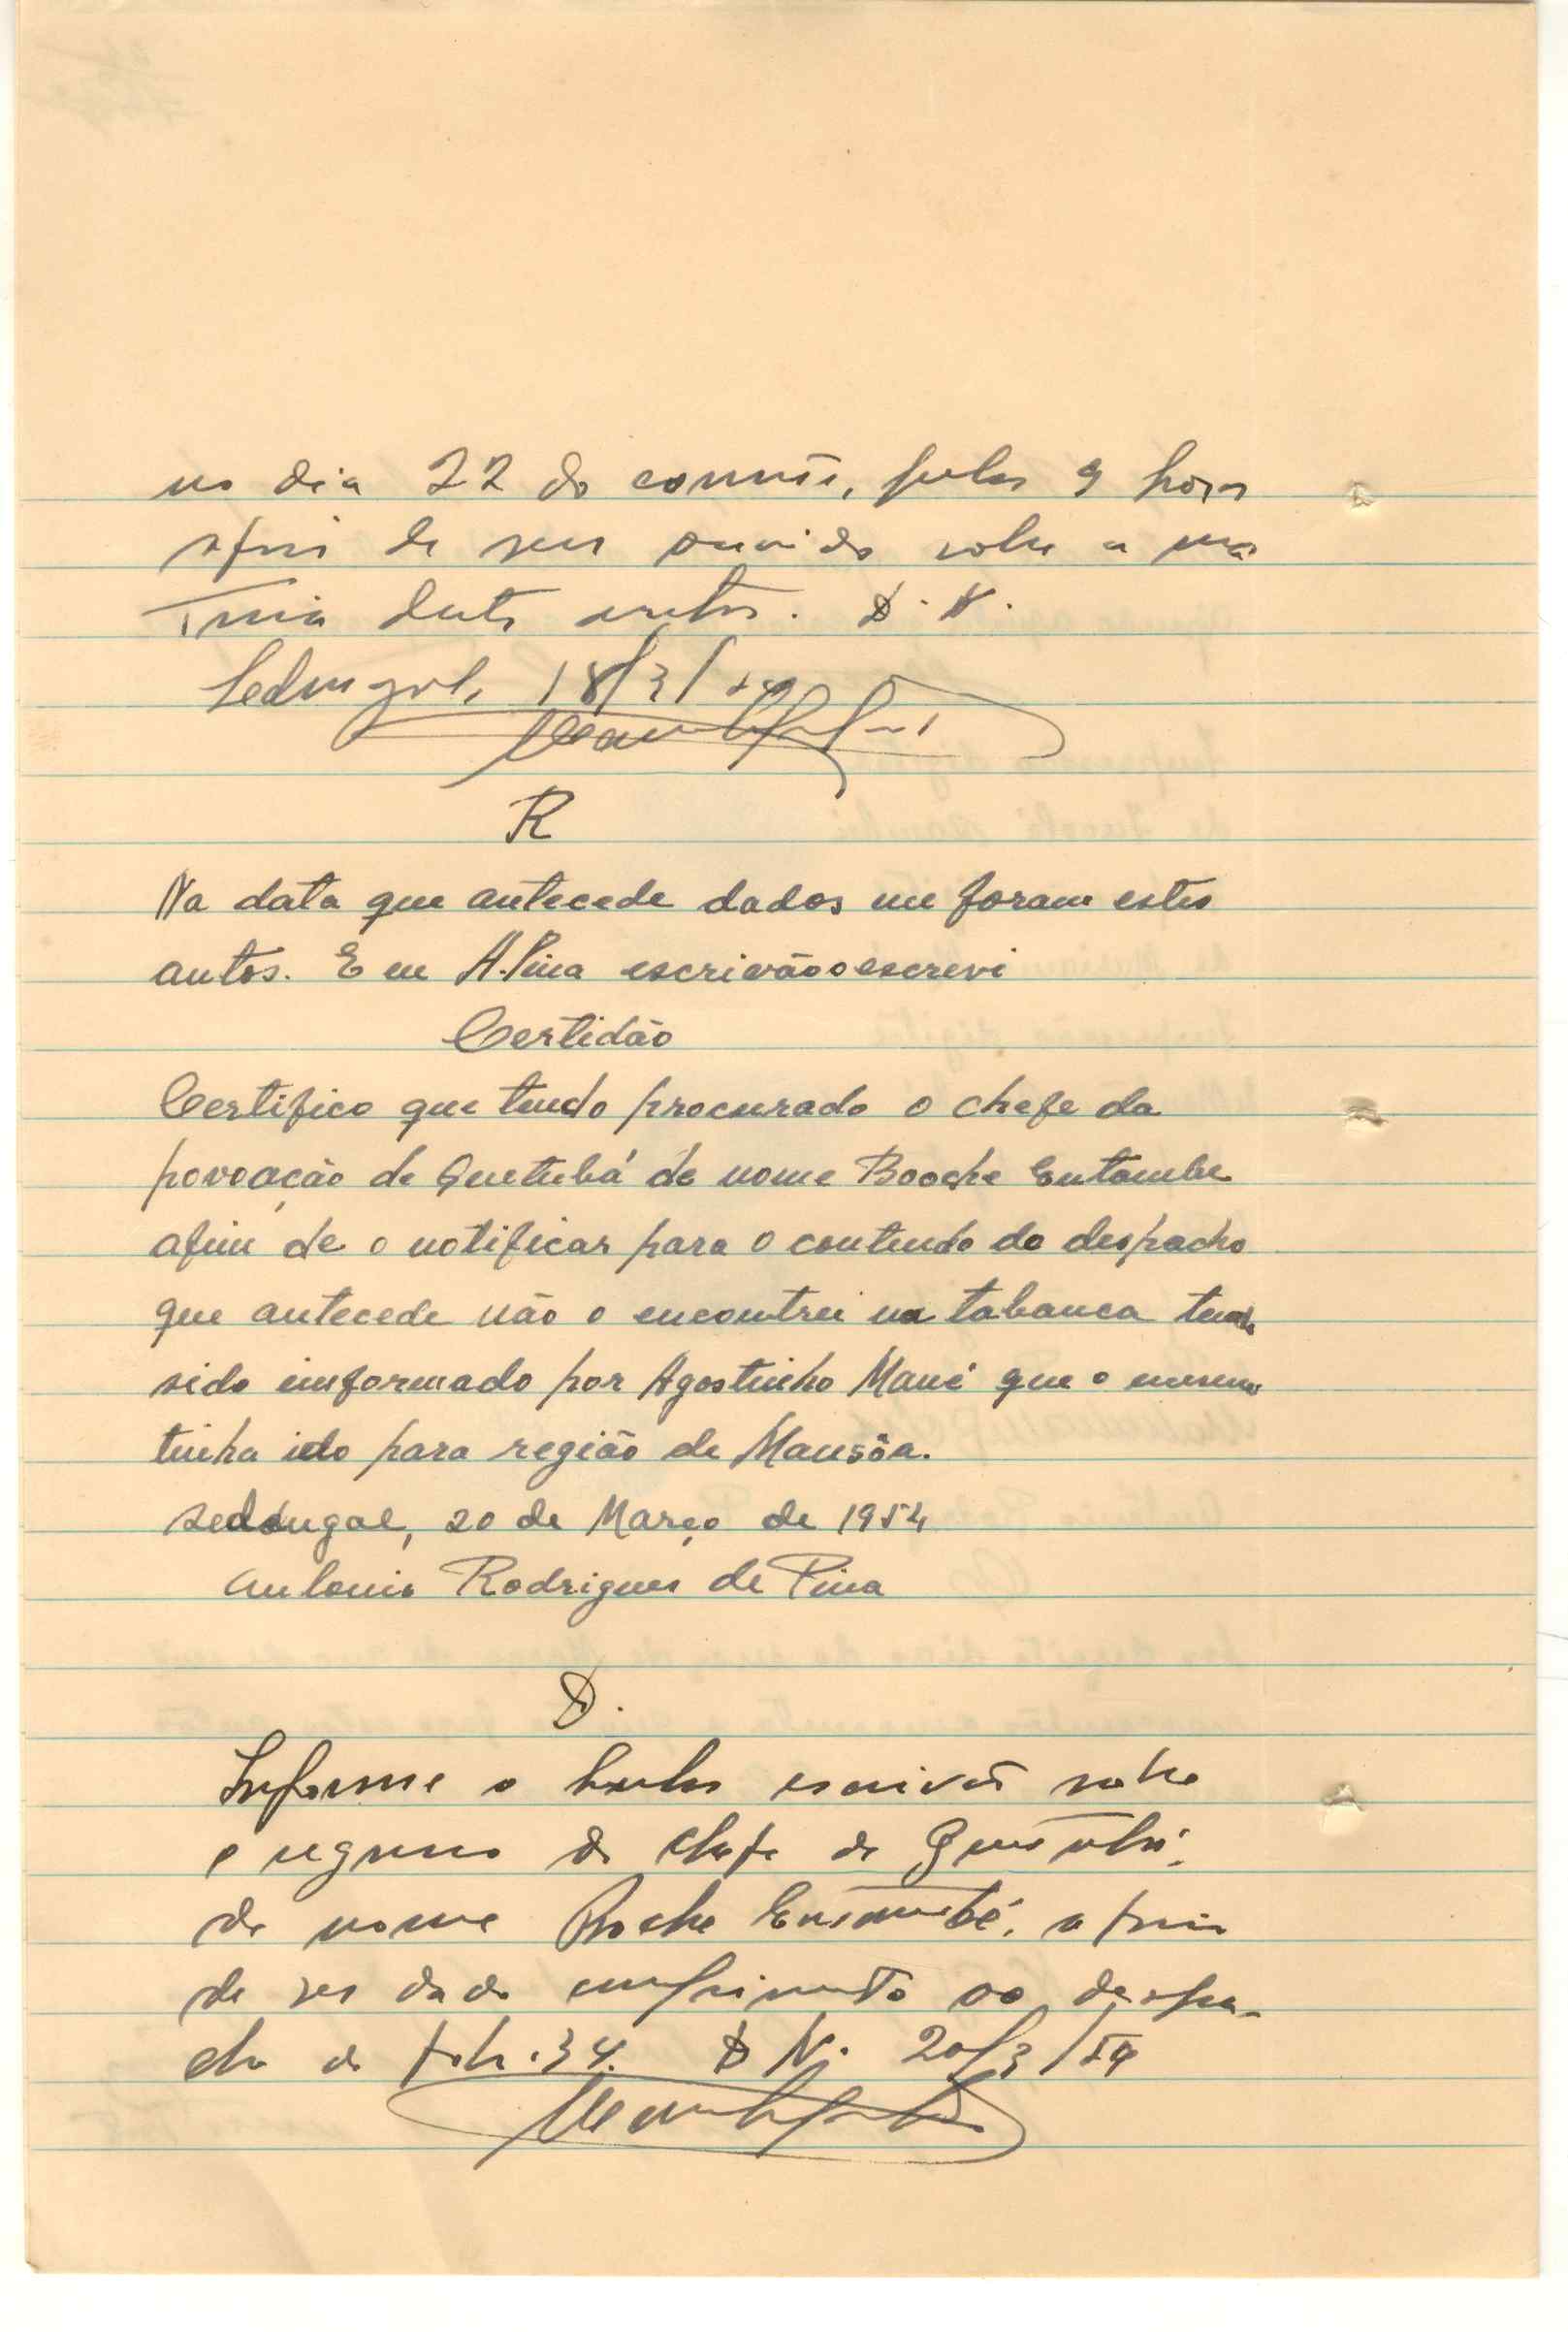 no dia 22 do corrente, pelas 9 horas
afim de ser ouvido sobre a ma
teria destes autos. D. N.
Sedengal, 18/3/54
R
Na data que antecede dados me foram estes
autos. E eu A. Pina escrivão o escrevi
Certidão
Certifico que tendo procurado o chefe da
povoação de Quetubá de nome Booche Entambe
afim de o notificar para o conteudo do despacho
que antecede não o encontrei na tabanca tendo
sido imformado por Agostinho Mané que o mesmo
tinha ido para região de Mansôa.
Sedengal, 20 de Março de 1954
Antonio Rodrigues de Pina
D.
Informe o escrivão sobre
o regresso do chefe de Quetubá,
de nome Boche Entambé, afim
de ser dado cumprimento ao despa-
cho de folh. 34. D N. 20/3/54